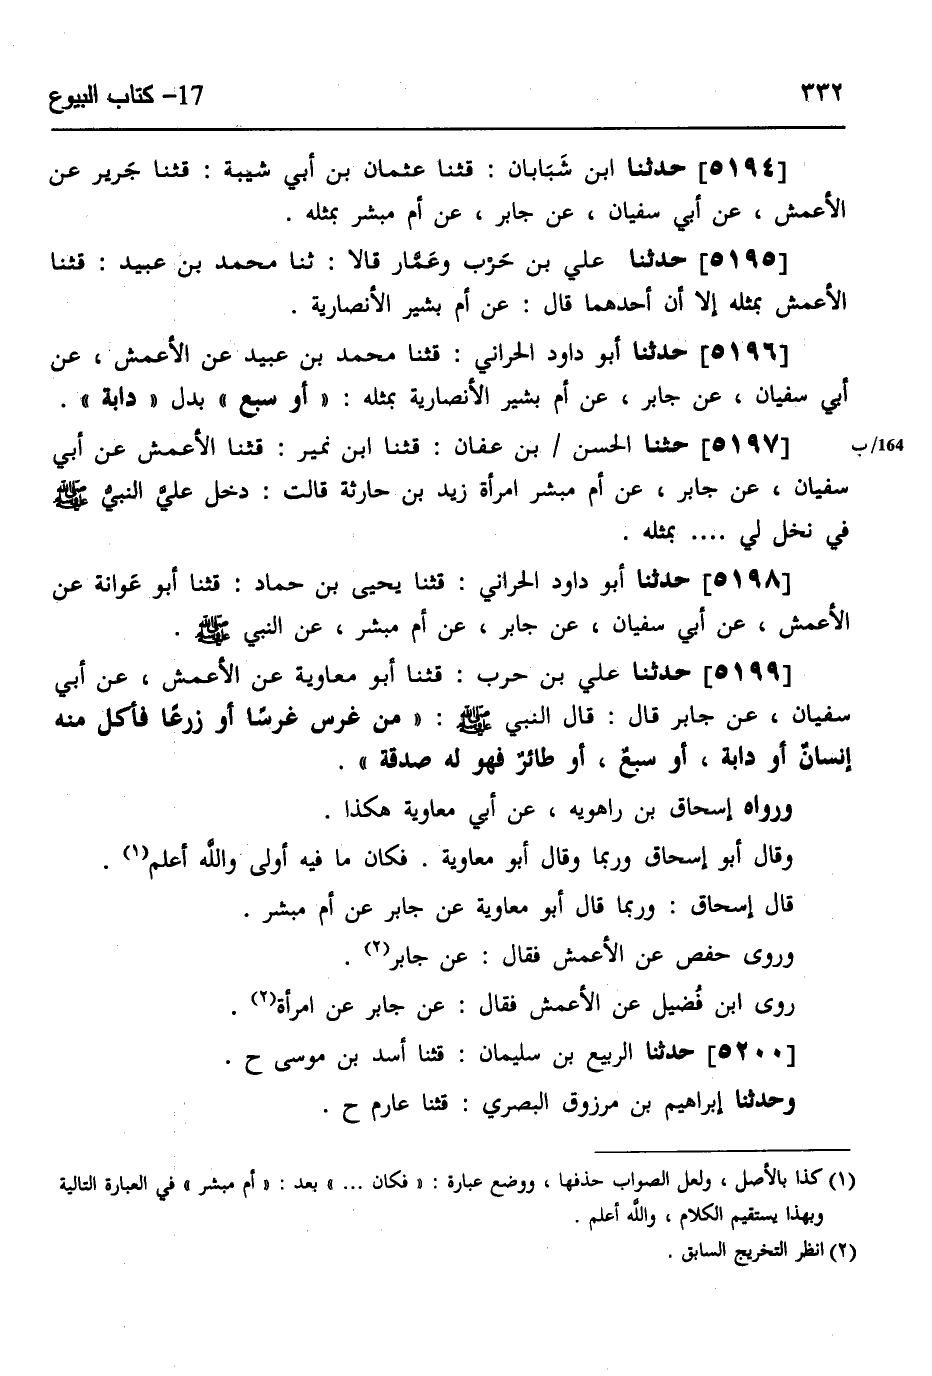 ٣٣٢
17- كتاب البيوع
[٥١٩٤] حدثنا ابن شَبَابان : قثنا عثمان بن أبي شيبة : قثنا جَرير عن
الأعمش ، عن أبي سفيان ، عن جابر ، عن أم مبشر بمثله .
[٥١٩٥] حدثنا علي بن حَرْب وعَمَّار قالا : ثنا محمد بن عبيد : قثنا
الأعمش بمثله إلا أن أحدهما قال : عن أم بشير الأنصارية .
[٥١٩٦] حدثنا أبو داود الحراني : قثنا محمد بن عبيد عن الأعمش ، عن
أبي سفيان ، عن جابر ، عن أم بشير الأنصارية بمثله : « أو سبع » بدل « دابة » .
[٥١٩٧] حثنا الحسن / بن عفان : قثنا ابن نمير : قثنا الأعمش عن أبي
164/ب
سفيان ، عن جابر ، عن أم مبشر امرأة زيد بن حارثة قالت : دخل عليَّ النبيُّ ﷺ
في نخل لي .... بمثله .
[٥١٩٨] حدثنا أبو داود الحراني : قثنا يحيى بن حماد : قثنا أبو عَوانة عن
الأعمش ، عن أبي سفيان ، عن جابر ، عن أم مبشر ، عن النبي ﷺ .
[٥١٩٩] حدثنا علي بن حرب : قثنا أبو معاوية عن الأعمش ، عن أبي
سفيان ، عن جابر قال : قال النبي ﷺ : « من غرس غرسًا أو زرعًا فأكل منه
إنسانٌ أو دابة ، أو سبعٌ ، أو طائرٌ فهو له صدقة » .
ورواه إسحاق بن راهويه ، عن أبي معاوية هكذا .
وقال أبو إسحاق وربما وقال أبو معاوية . فكان ما فيه أولى واللَّه أعلم(١) .
قال إسحاق : وربما قال أبو معاوية عن جابر عن أم مبشر .
وروى حفص عن الأعمش فقال : عن جابر(٢) .
روى ابن فُضيل عن الأعمش فقال : عن جابر عن امرأة(٢) .
[٥٢٠٠] حدثنا الربيع بن سليمان : قثنا أسد بن موسى ح .
وحدثنا إبراهيم بن مرزوق البصري : قثنا عارم ح .
(١) كذا بالأصل ، ولعل الصواب حذفها ، ووضع عبارة : « فكان ... » بعد : « أم مبشر » في العبارة التالية
وبهذا يستقيم الكلام ، واللَّه أعلم .
(٢) انظر التخريج السابق .